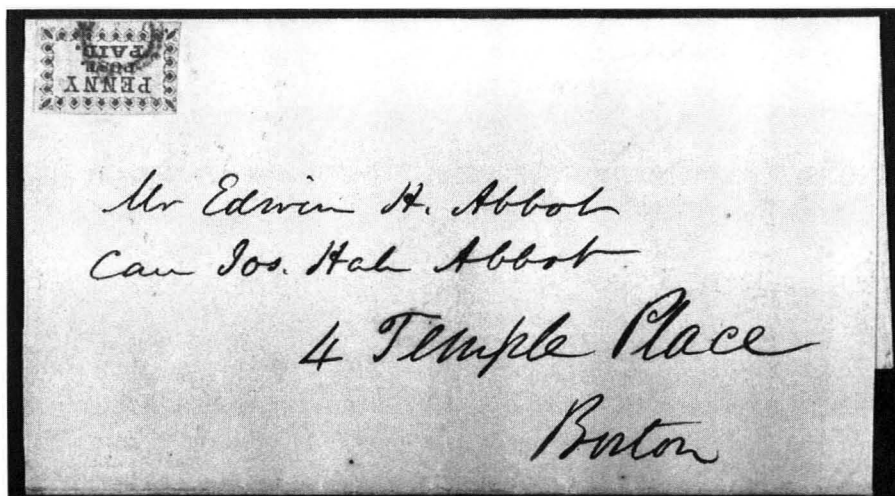 PENNY
POST
PAID.
Mr Edwin H. Abbot
Care Jos. Hale Abbot
4 Temple Place
Boston